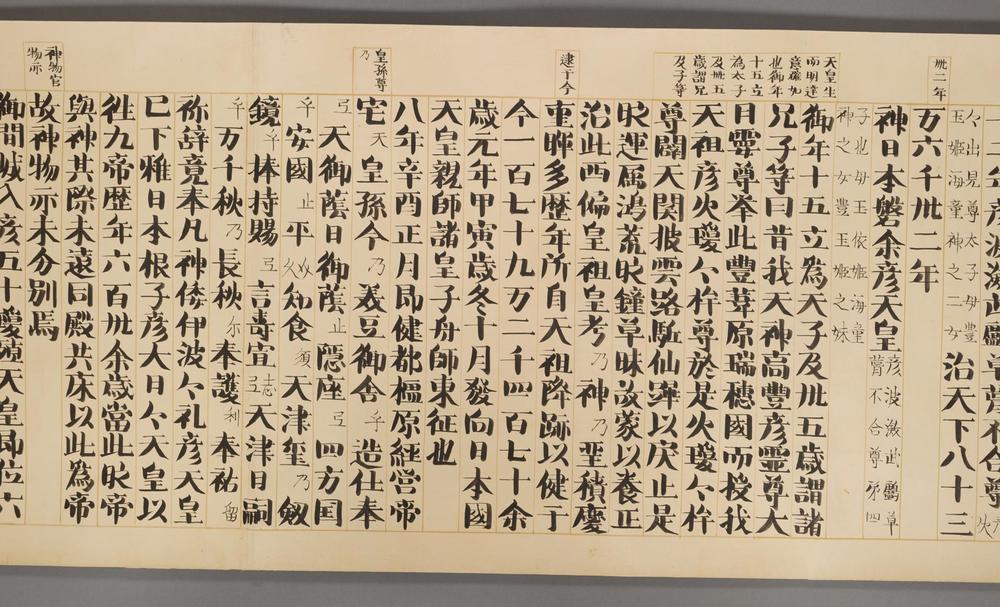 卅二年
天皇生
而明達
意確如
也御年
十五立
為太子
及卅五
歳謂兄
及子等
逮于今
皇孫尊
乃
神物官
物亦
二年彦波瀲武鸕草葺不合尊火
々出見尊太子母豊
玉姫海童神之二女
治天下八十三
万六千卅二年
神日本磐余彦天皇
彦波瀲武鸕草
葺不合尊第四
子也母玉依姫海童
神之女豊玉姫之妹
御年十五立為天子及卅五歳謂諸
兄子等曰昔我天神高豊彦霊尊大
日孁尊挙此豊葦原瑞穂國而授我
天祖彦火瓊々杵尊於是火瓊々杵
尊闢天関披雲路駈仙蹕以戻止是
時運属鴻荒時鐘草昧故蒙以養正
治此西偏皇祖皇考乃神乃聖積慶
重暉多歴年所自天祖降跡以健于
今一百七十九万二千四百七十余
歳元年甲寅歳冬十月發向日本國
天皇親師諸皇子舟師東征也
八年辛酉正月即健都橿原経営帝
宅天皇孫命乃美豆御舎乎造仕奉
弖天御蔭日御蔭止隠座弖四方国
乎安國止平久知食須天津璽乃釼
鏡乎捧持賜弖言壽宣志弖天津日嗣
乎万千秋乃長秋尓奉護利奉祐留
祢辞竟奉凡神倭伊波々礼彦天皇
已下稚日本根子彦大日々天皇以
徃九帝歴年六百卅余歳當此時帝
與神其際未遠同殿共床以此為帝
故神物亦未分別焉
御間城入彦五十瓊殖天皇即位六